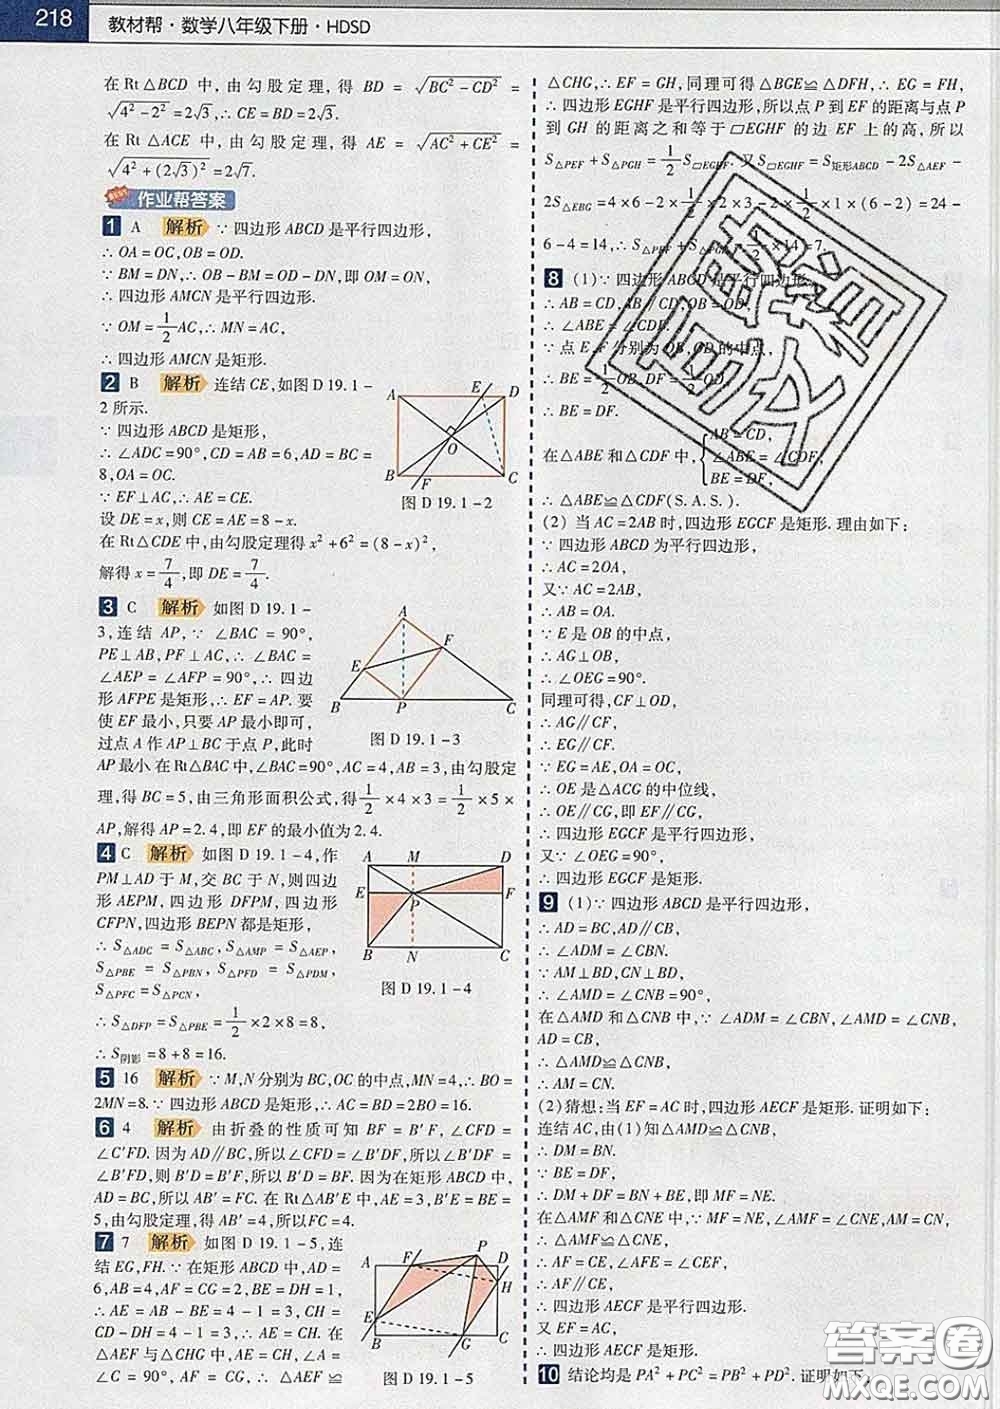 218 教材帮·数学八年级下册·HDSD
在 Rt△BCD 中,由勾股定理,得 BD = √(BC² - CD²) =
√(4² - 2²) = 2√3,∴ CE = BD = 2√3.
在 Rt △ACE 中,由勾股定理,得 AE = √(AC² + CE²) =
√(4² + (2√3)²) = 2√7.
作业帮答案
1 A 解析 ∵ 四边形 ABCD 是平行四边形,
∴ OA = OC,OB = OD.
∵ BM = DN,∴ OB - BM = OD - DN,即 OM = ON,
∴ 四边形 AMCN 是平行四边形.
∵ OM = 1/2 AC,∴ MN = AC,
∴ 四边形 AMCN 是矩形.
2 B 解析 连结 CE,如图 D 19.1 -
2 所示.
∵ 四边形 ABCD 是矩形,
∴ ∠ADC = 90°,CD = AB = 6,AD = BC =
8,OA = OC.
∵ EF⊥AC,∴ AE = CE.
设 DE = x,则 CE = AE = 8 - x.
在 Rt△CDE 中,由勾股定理得 x² + 6² = (8 - x)²,
解得 x = 7/4,即 DE = 7/4.
A E D O B F C
图 D 19.1 - 2
3 C 解析 如图 D 19.1 -
3,连结 AP,∵ ∠BAC = 90°,
PE⊥AB,PF⊥AC,∴ ∠BAC =
∠AEP = ∠AFP = 90°,∴ 四边
形 AFPE 是矩形,∴ EF = AP. 要
使 EF 最小,只要 AP 最小即可,
过点 A 作 AP⊥BC 于点 P,此时
AP 最小.在 Rt△BAC 中,∠BAC = 90°,AC = 4,AB = 3,由勾股定
理,得 BC = 5,由三角形面积公式,得 1/2 × 4 × 3 = 1/2 × 5 ×
AP,解得 AP = 2.4,即 EF 的最小值为 2.4.
A F E B P C
图 D 19.1 - 3
4 C 解析 如图 D 19.1 - 4,作
PM⊥AD 于 M,交 BC 于 N,则四边
形 AEPM,四边形 DFPM,四边形
CFPN,四边形 BEPN 都是矩形,
∴ S△ADC = S△ABC,S△AMP = S△AEP,
S△PBE = S△PBN,S△PFD = S△PDM,
S△PFC = S△PCN,
∴ S△DFP = S△PBE = 1/2 × 2 × 8 = 8,
∴ S阴影 = 8 + 8 = 16.
A M D E P F B N C
图 D 19.1 - 4
5 16 解析 ∵ M,N 分别为 BC,OC 的中点,MN = 4,∴ BO =
2MN = 8.∵ 四边形 ABCD 是矩形,∴ AC = BD = 2BO = 16.
6 4 解析 由折叠的性质可知 BF = B′F,∠CFD =
∠C′FD. 因为 AD∥BC,所以∠CFD = ∠B′DF,所以∠B′DF =
∠B′FD,则 B′D = B′F,所以 B′D = BF. 因为在矩形 ABCD 中,
AD = BC,所以 AB′ = FC. 在 Rt△AB′E 中,AE = 3,B′E = BE =
5,由勾股定理,得 AB′ = 4,所以FC = 4.
7 7 解析 如图 D 19.1 - 5,连
结 EG,FH.∵ 在矩形 ABCD 中,AD =
6,AB = 4,AF = CG = 2,BE = DH = 1,
∴ AE = AB - BE = 4 - 1 = 3,CH =
CD - DH = 4 - 1 = 3,∴ AE = CH. 在
△AEF 与△CHG 中,AE = CH,∠A =
∠C = 90°,AF = CG,∴ △AEF ≌
A F P D H E B G C
图 D 19.1 - 5
△CHG,∴ EF = GH,同理可得△BGE≌△DFH,∴ EG = FH,
∴ 四边形 EGHF 是平行四边形,所以点 P 到 EF 的距离与点 P
到 GH 的距离之和等于▱EGHF 的边 EF 上的高,所以
S△PEF + S△PGH = 1/2 S▱EGHF. 又 S▱EGHF = S矩形ABCD - 2S△AEF -
2S△EBG = 4 × 6 - 2 × 1/2 × 2 × 3 - 2 × 1/2 × 1 × (6 - 2) = 24 -
6 - 4 = 14,∴ S△PEF + S△PGH = 1/2 × 14 = 7.
8 (1)∵ 四边形 ABCD 是平行四边形,
∴ AB = CD,AB∥CD,OB = OD,
∴ ∠ABE = ∠CDF.
∵ 点 E,F 分别为 OB,OD 的中点,
∴ BE = 1/2 OB,DF = 1/2 OD,
∴ BE = DF.
在△ABE 和△CDF 中,{AB = CD,
∠ABE = ∠CDF,
BE = DF,
∴ △ABE≌△CDF(S.A.S.).
(2) 当 AC = 2AB 时,四边形 EGCF 是矩形. 理由如下:
∵ 四边形 ABCD 为平行四边形,
∴ AC = 2OA,
又∵ AC = 2AB,
∴ AB = OA.
∵ E 是 OB 的中点,
∴ AG⊥OB,
∴ ∠OEG = 90°.
同理可得,CF⊥OD,
∴ AG∥CF,
∴ EG∥CF.
∵ EG = AE,OA = OC,
∴ OE 是△ACG 的中位线,
∴ OE∥CG,即 EF∥CG,
∴ 四边形 EGCF 是平行四边形,
又∵ ∠OEG = 90°,
∴ 四边形 EGCF 是矩形.
9 (1)∵ 四边形 ABCD 是平行四边形,
∴ AD = BC,AD∥BC,
∴ ∠ADM = ∠CBN.
∵ AM⊥BD,CN⊥BD,
∴ ∠AMD = ∠CNB = 90°,
在△AMD 和△CNB 中,∵ ∠ADM = ∠CBN,∠AMD = ∠CNB,
AD = CB,
∴ △AMD≌△CNB,
∴ AM = CN.
(2)猜想:当 EF = AC 时,四边形 AECF 是矩形. 证明如下:
连结 AC,由(1)知△AMD≌△CNB,
∴ DM = BN.
∵ BE = DF,
∴ DM + DF = BN + BE,即 MF = NE.
在△AMF 和△CNE 中,∵ MF = NE,∠AMF = ∠CNE,AM = CN,
∴ △AMF≌△CNE,
∴ AF = CE,∠AFE = ∠CEF,
∴ AF∥CE,
∴ 四边形 AECF 是平行四边形.
又 EF = AC,
∴ 四边形 AECF 是矩形.
10 结论均是 PA² + PC² = PB² + PD². 证明如下.
答案圈
MXQE.COM